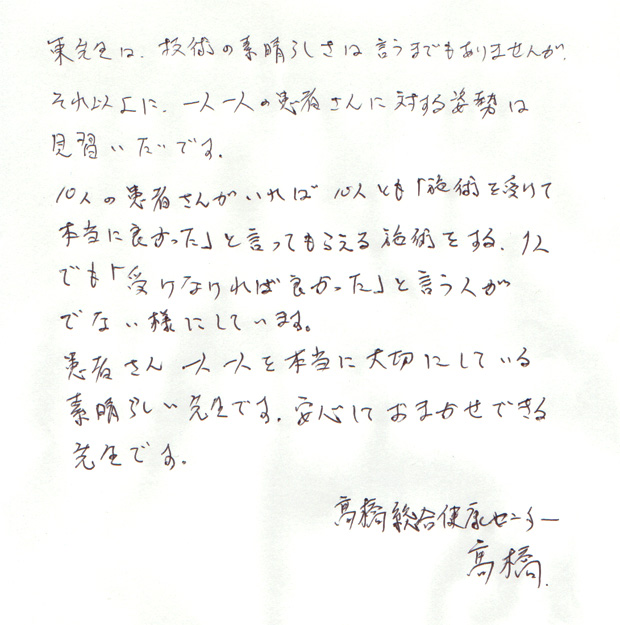 東先生は、技術の素晴らしさは言うまでもありませんが、
それ以上に、一人一人の患者さんに対する姿勢は
見習いたいです。
10人の患者さんがいれば10人とも「施術を受けて
本当に良かった」と言ってもらえる施術をする。1人
でも「受けなければ良かった」と言う人が
でない様にしています。
患者さん一人一人を本当に大切にしている
素晴らしい先生です。安心しておまかせできる
先生です。
高橋総合健康センター
高橋.